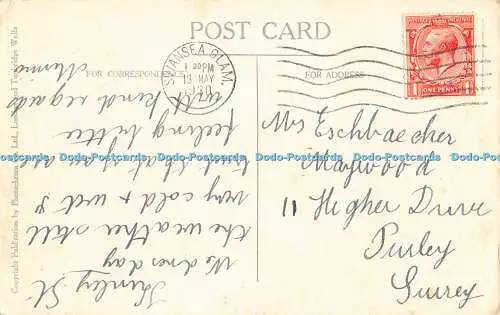 POST CARD
FOR CORRESPONDENCE
FOR ADDRESS
SWANSEA GLAM.
13 MAY
POSTAGE REVENUE
ONE PENNY
Mrs Eschbaecher
Maywood
11 Higher Drive
Purley
Surrey
St
Wednesday
the weather still
very cold & wet
feeling better
with kind regards
Minnie
Copyright Publication by Photochrom Co., Ltd., London and Tunbridge Wells
Dodo-Postcards Dodo-Postcards Dodo-Postcards Dodo-Postcards Dodo-Postcards Dodo-Postcards